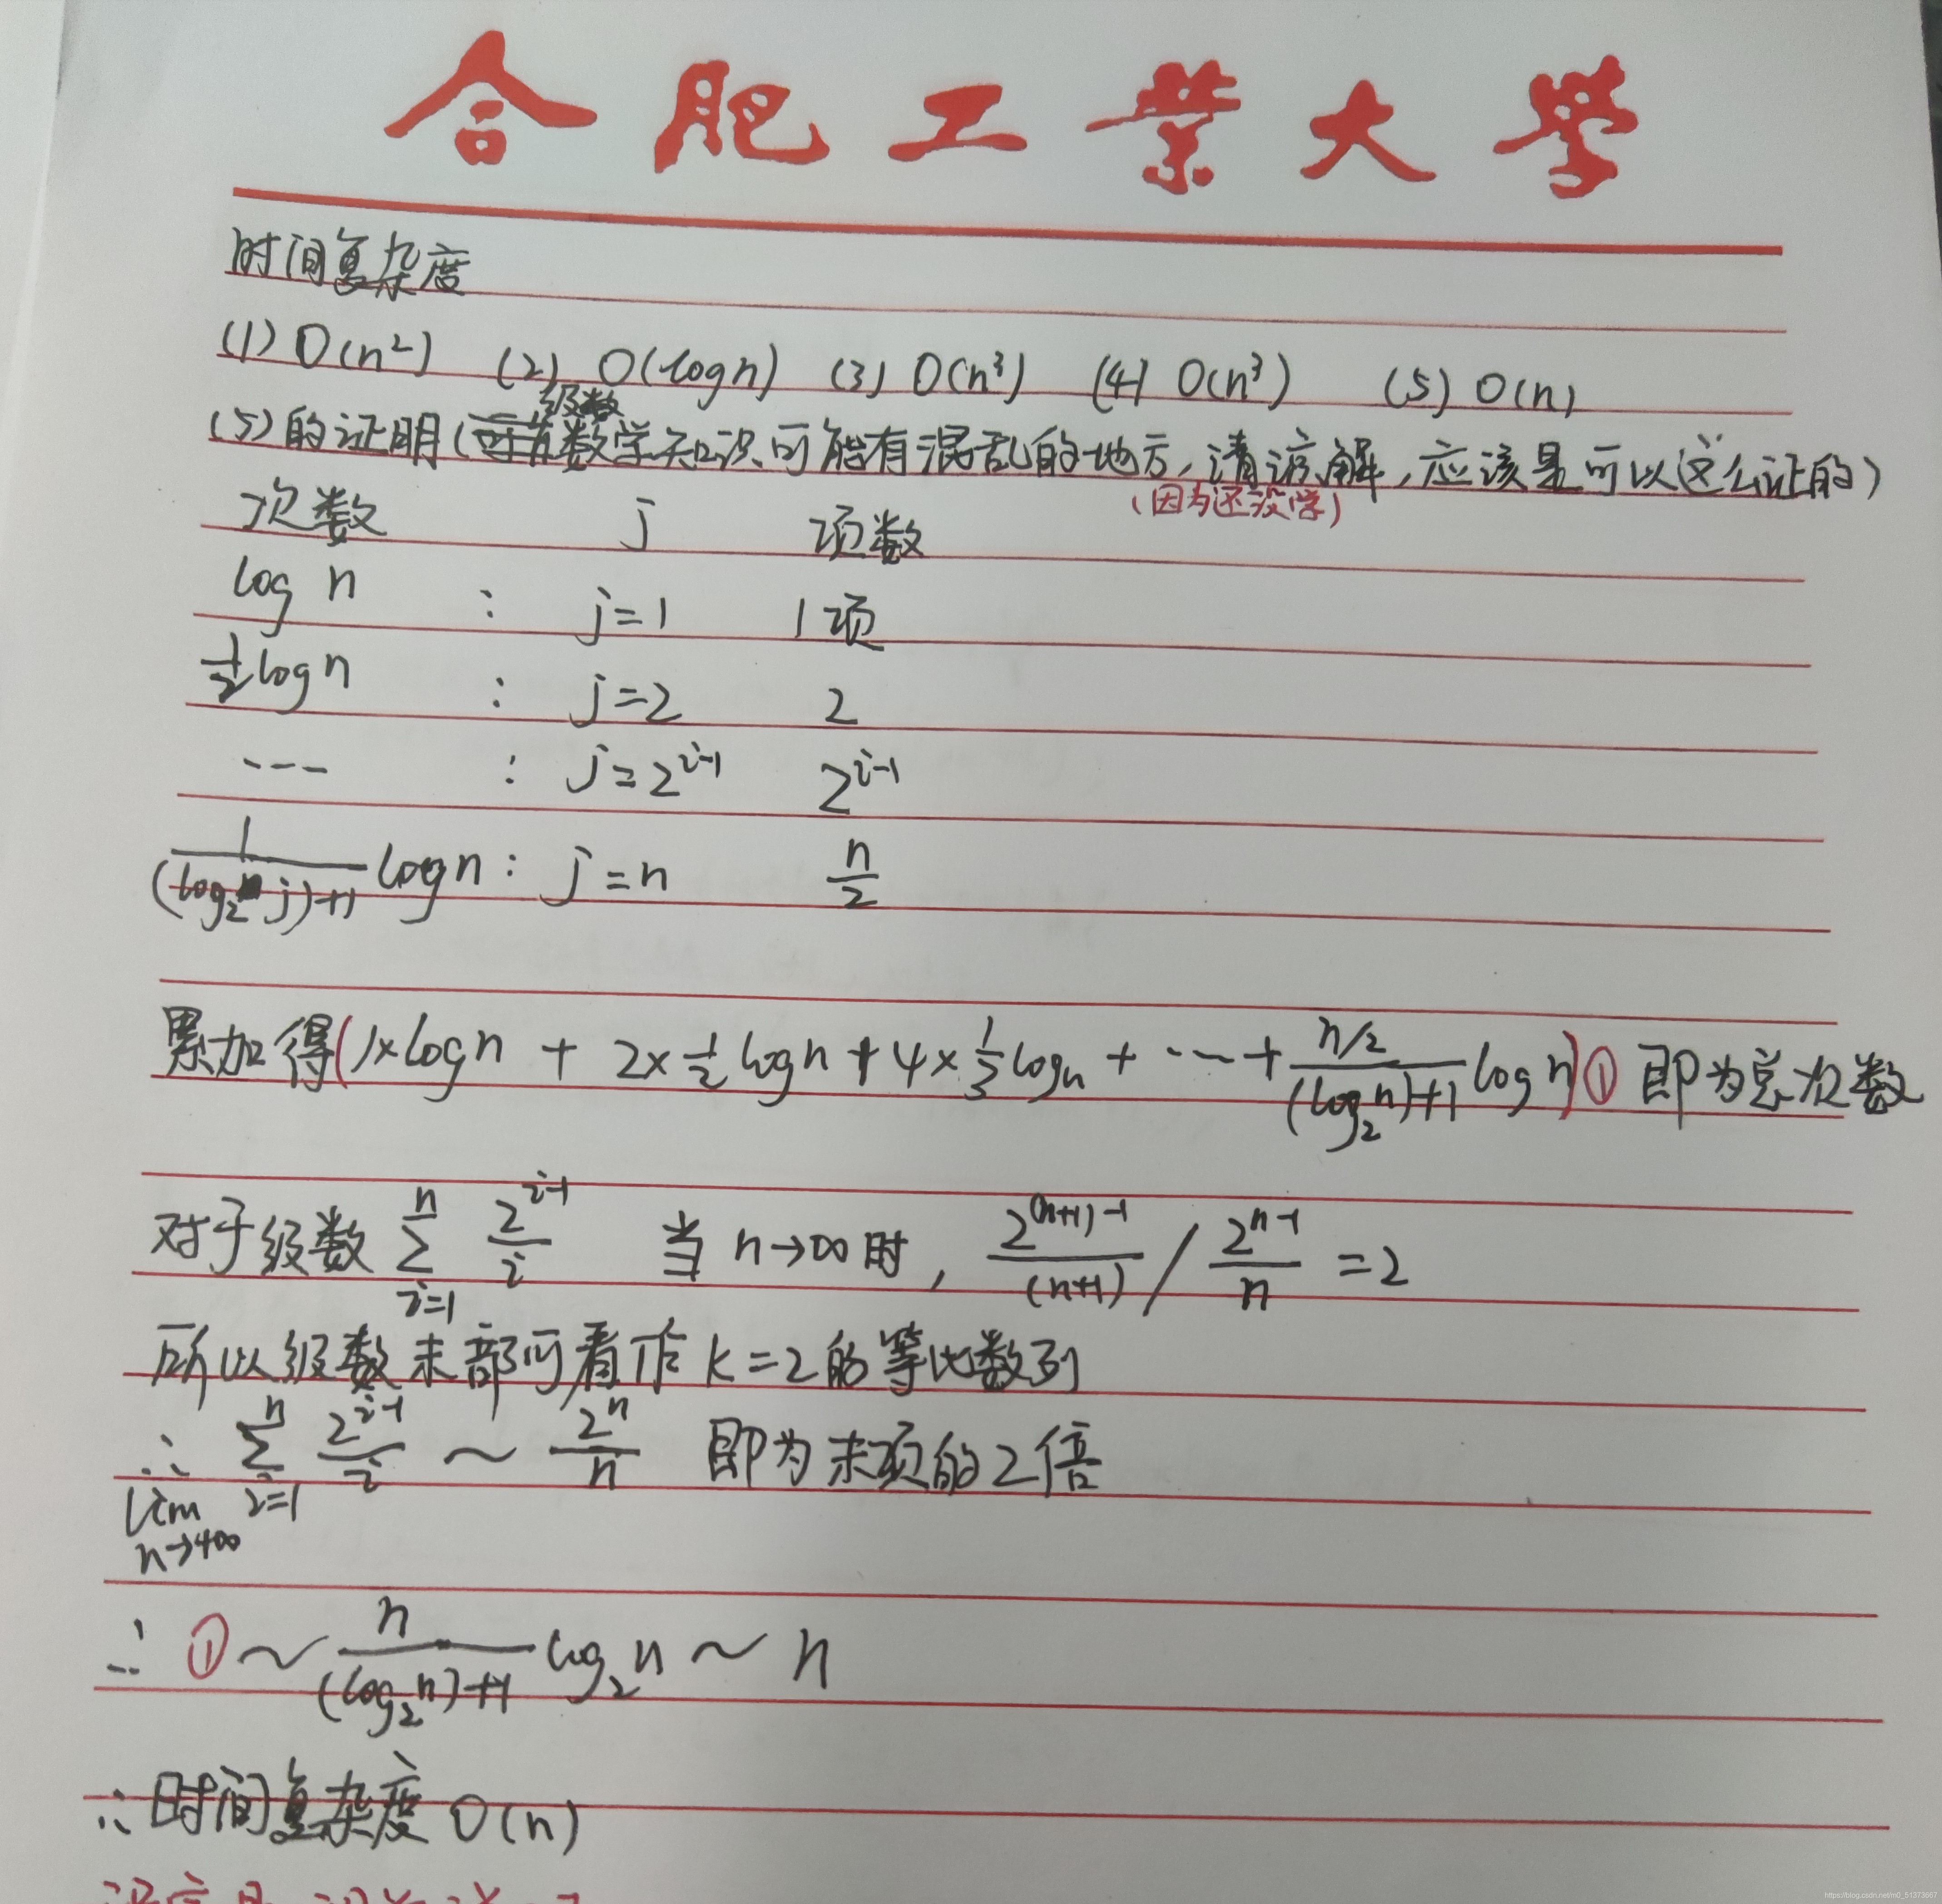 合肥工業大學
时间复杂度
(1) O(n²) (2) O(logn) (3) O(n³) (4) O(n³) (5) O(n)
级数
(5)的证明(数学知识可能有混乱的地方,请谅解,应该是可以这么证的)
(因为还没学)
次数 j 项数
log n : j=1 1项
1/2 log n : j=2 2
--- : j=2^(i-1) 2^(i-1)
1/((log₂j)+1) logn : j=n n/2
累加得(1×logn + 2×1/2 logn + 4×1/3 logn + ··· + (n/2)/((log₂n)+1) logn)① 即为总次数
对于级数 Σ_(i=1)^n 2^(i-1)/i 当 n→∞时, 2^((n+1)-1)/(n+1) / 2^(n-1)/n = 2
所以级数末部可看作 k=2的等比数列
∴ Σ_(i=1)^n 2^(i-1)/i ~ 2^n/n 即为末项的2倍
lim n→+∞
∴ ① ~ n/((log₂n)+1) log₂n ~ n
∴时间复杂度 O(n)
https://blog.csdn.net/m0_51373667